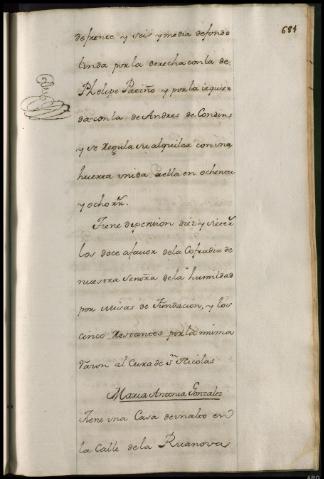 684
de frente y seis y media de fondo
linda por la derecha con la de
Phelipe Patiño y por la izquier
da con la de Andres de
y se regula su alquiler con ina
huerta unida a ella en ochenta
y ocho rr.
Tiene de pension diez y siete rr.
los doce a favor de la Cofradia de
nuestra Señora de la humildad
por misas de Fundacion, y los
cinco restantes por la misma
razon al Cura de Sn Nicolas
Maria Antonia Gonzalez
Tiene una Casa de inalto en
la Calle de la Ruanova